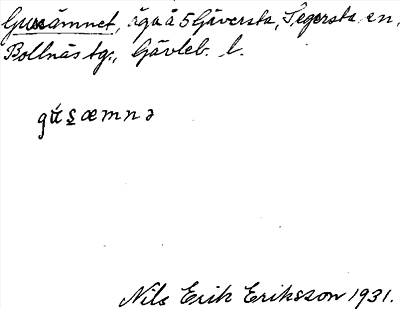 Gussämnet, äga å 5 Gäversta, Segersta sn,
Bollnäs tg., Gävleb. l.
gú̶s̲æmnə
Nils Erik Eriksson 1931.